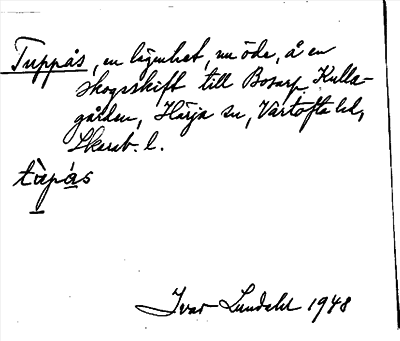 Tuppås, en lägenhet, nu öde, å en
skogsskift till Bosarp Kulla-
gården, Härja sn, Vartofta hd,
Skarab. l.
tùpás
Ivar Lundahl 1948